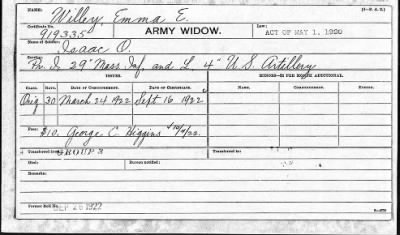 NAME: Willey, Emma E. (3-F.A.D.)
Certificate No. 919335 ARMY WIDOW. Law: ACT OF MAY 1, 1920
Name of Soldier: Isaac O.
Service: Pr. I, 29" Mass. Inf. and L, 4" U S. Artillery
ISSUES.
CLASS. RATE. DATE OF COMMENCEMENT. DATE OF CERTIFICATE. CLASS. RATE. DATE OF COMMENCEMENT. DATE OF CERTIFICATE.
Orig 30 March 24 1922 Sept 16 1922
Fees: $10. George C. Higgins $10/4/22.
Transferred from GROUP 3
Died:
Remarks:
Former Roll No. SEP 26 1922